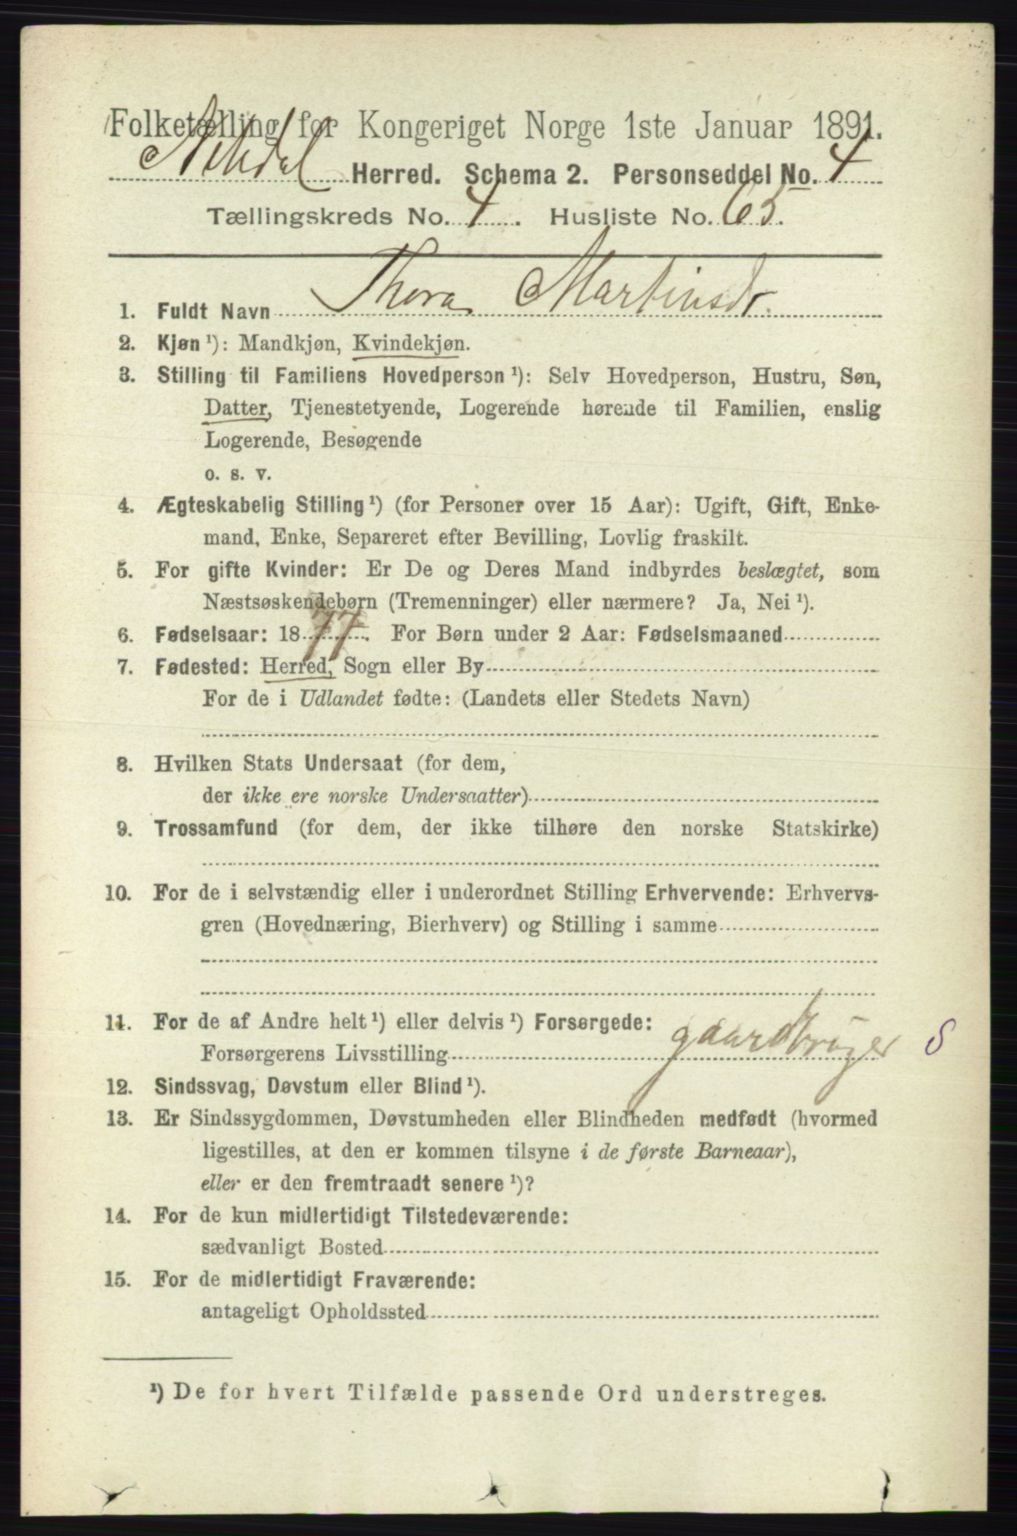 Folketælling for Kongeriget Norge 1ste Januar 1891.
Herred. Schema 2. Personseddel No. 4
Tællingskreds No. 4. Husliste No. 65.
1. Fuldt Navn Thora Martinsdr.
2. Kjøn ¹): Mandkjøn, Kvindekjøn.
3. Stilling til Familiens Hovedperson ¹): Selv Hovedperson, Hustru, Søn,
Datter, Tjenestetyende, Logerende hørende til Familien, enslig
Logerende, Besøgende
o. s. v.
4. Ægteskabelig Stilling ¹) (for Personer over 15 Aar): Ugift, Gift, Enke-
mand, Enke, Separeret efter Bevilling, Lovlig fraskilt.
5. For gifte Kvinder: Er De og Deres Mand indbyrdes beslægtet, som
Næstsøskendebørn (Tremenninger) eller nærmere? Ja, Nei ¹).
6. Fødselsaar: 1877. For Børn under 2 Aar: Fødselsmaaned
7. Fødested: Herred, Sogn eller By
For de i Udlandet fødte: (Landets eller Stedets Navn)
8. Hvilken Stats Undersaat (for dem,
der ikke ere norske Undersaatter)
9. Trossamfund (for dem, der ikke tilhøre den norske Statskirke)
10. For de i selvstændig eller i underordnet Stilling Erhvervende: Erhvervs-
gren (Hovednæring, Bierhverv) og Stilling i samme
11. For de af Andre helt ¹) eller delvis ¹) Forsørgede:
Forsørgerens Livsstilling gaardbruger S
12. Sindssvag, Døvstum eller Blind ¹).
13. Er Sindssygdommen, Døvstumheden eller Blindheden medfødt (hvormed
ligestilles, at den er kommen tilsyne i de første Barneaar),
eller er den fremtraadt senere ¹)?
14. For de kun midlertidigt Tilstedeværende:
sædvanligt Bosted
15. For de midlertidigt Fraværende:
antageligt Opholdssted
¹) De for hvert Tilfælde passende Ord understreges.